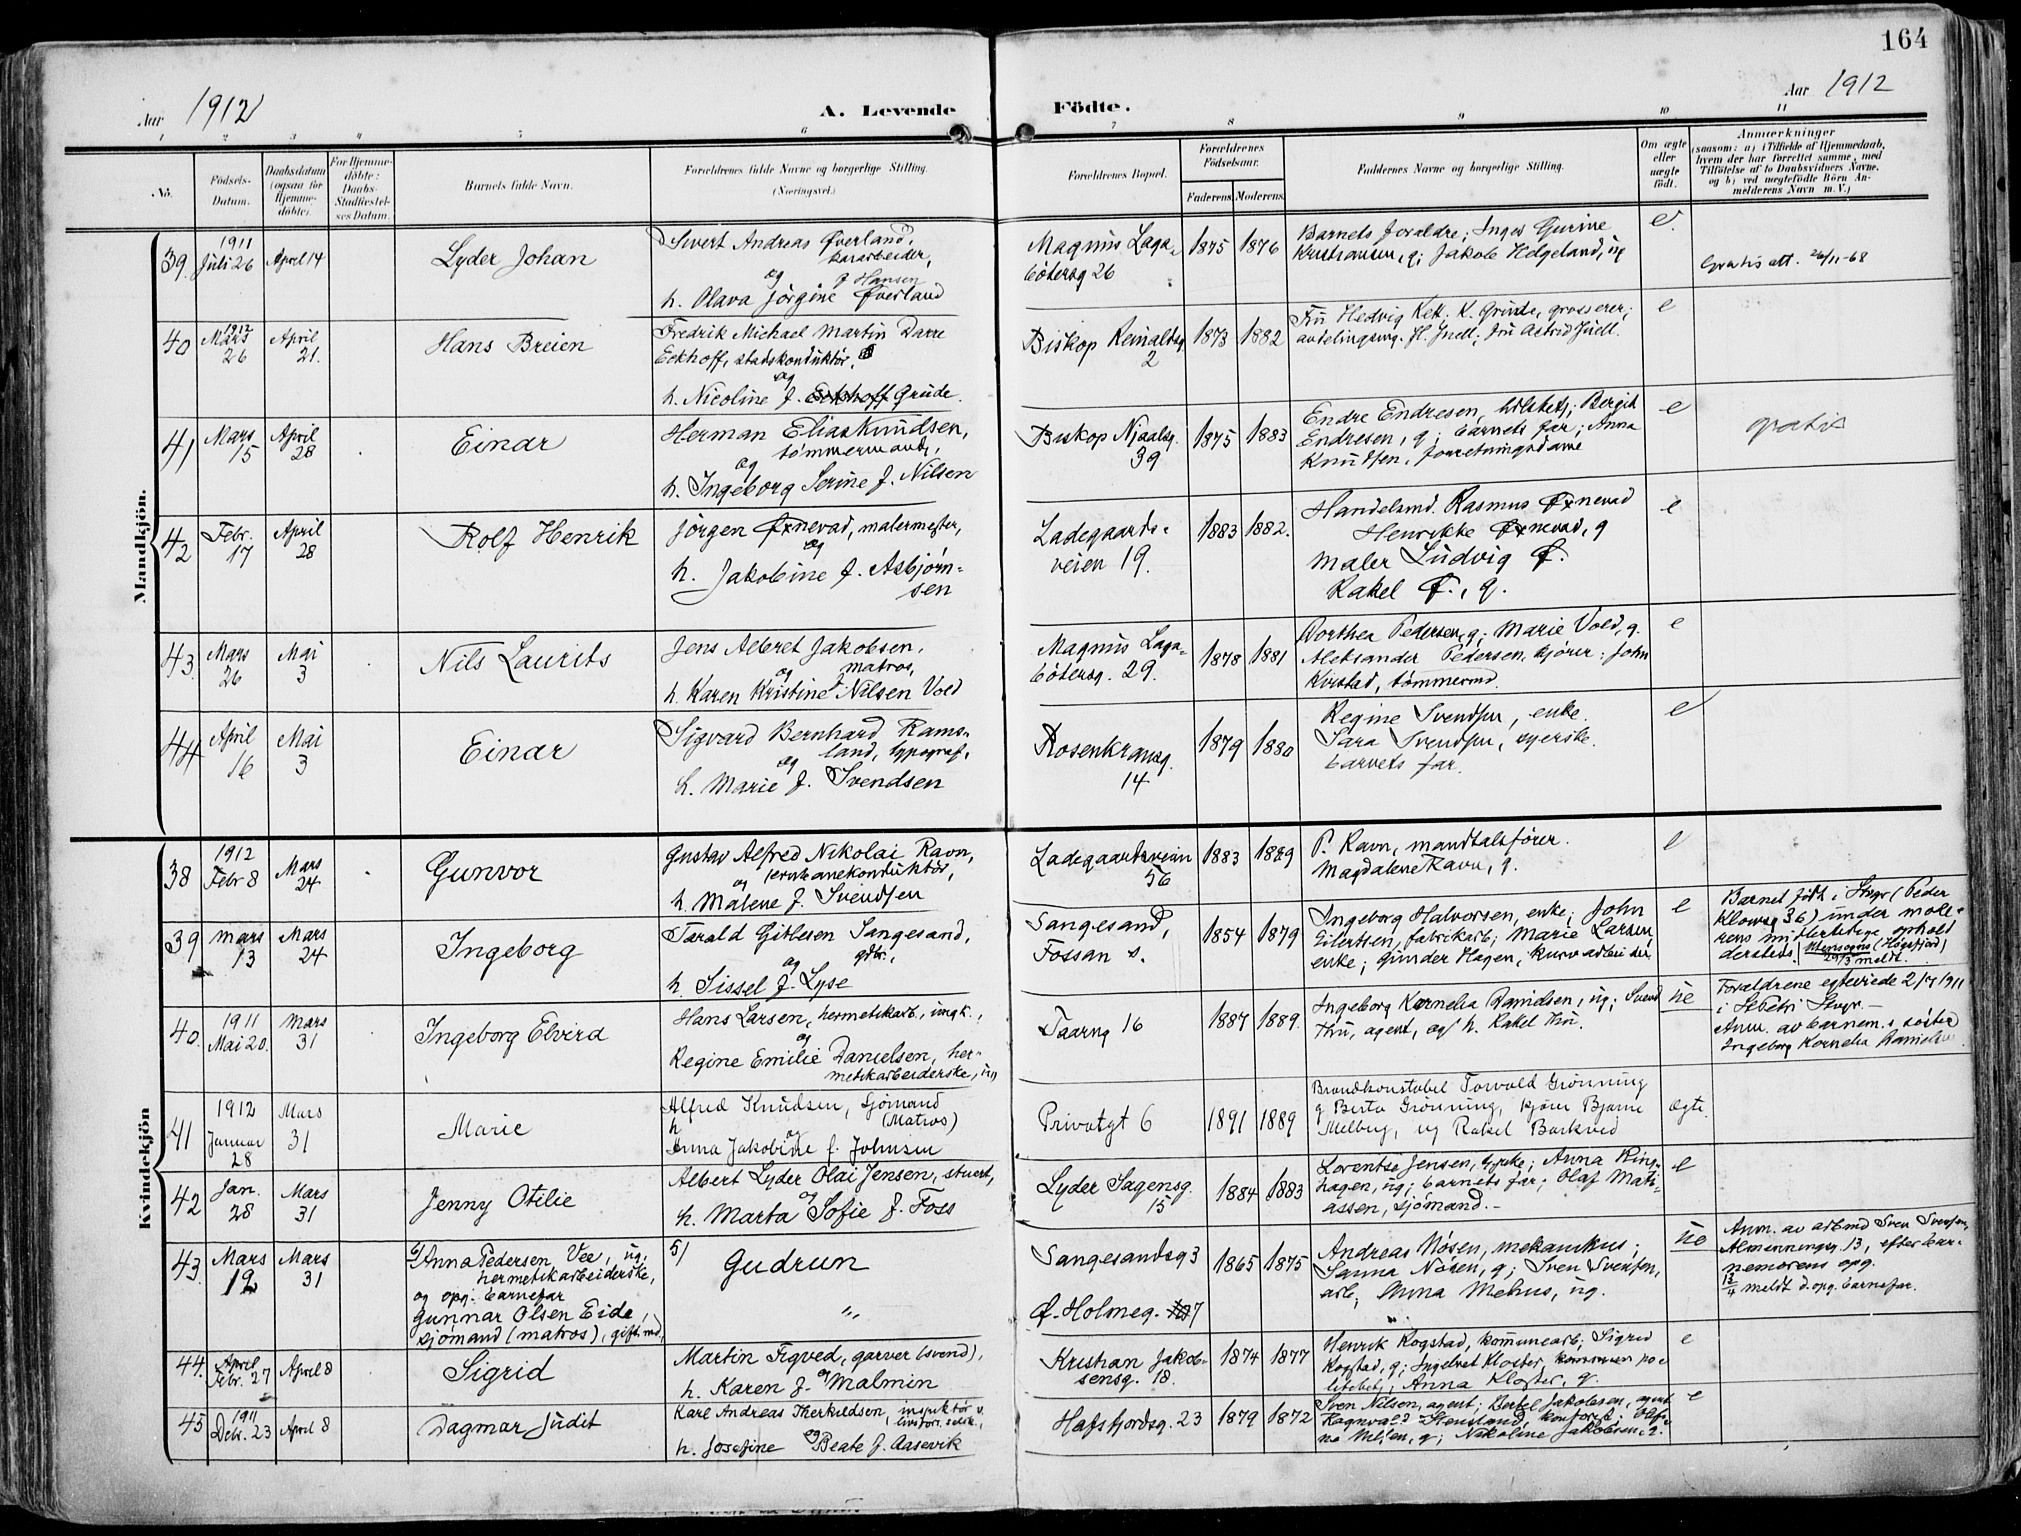 164
Aar 1912
A. Levende Födte.
Aar 1912
1 2 3 4 5 6 7 8 9 10 11
No.
Födsels-Datum.
Daabsdatum (ogsaa for Hjemmedöbte).
For Hjemmedöbte: Daabs-Stadfæstelses Datum.
Barnets fulde Navn.
Forældrenes fulde Navne og borgerlige Stilling. (Næringsvei.)
Forældrenes Bopæl.
Forældrenes Födselsaar.
Faderens. Moderens.
Faddernes Navne og borgerlige Stilling.
Om ægte eller uægte födt.
Anmærkninger
(saasom: a) i Tilfælde af Hjemmedaab, hvem der har forrettet samme, med Tilföielse af to Daabsvidners Navne, og b) ved uægtefödte Börn Anmelderens Navn m. V.)
Mandkjön.
39. 1911 Juli 26 April 14
Lyder Johan
Sivert Andreas Øverland,
og
h. Olava Jörgine Øverland f Hansen
Magnus Lagabötersg 26
1875 1876
Barnets foraldre; Inger Gurine Kristiansen, g; Jakob Helgeland, ug
e.
Gratis att. 26/11-68
40 1912 Mars 26 April 21.
Hans Breien
Fredrik Michael Martin Darre
Eckhoff, stadskonduktör,
og
h. Nicoline f. Grude.
Biskop Reinaldsg 2
1873 1882
Fru Hedvig K. Grude, grosserer;
fru Astrid Juell.
e
41 Mars 15 April 28
Einar
Herman Elias Knudsen,
tömmermand,
og
h. Ingeborg Serine f. Nilsen
Biskop Njaalsg. 39
1875 1883
Endre Endresen, Bergit
Endresen, g; barnets far; Anna
Knudsen, forretningsdame
e
gratis
42 Febr. 17 April 28
Rolf Henrik
Jörgen Øxnevad, malermester,
og
h. Jakobine f. Asbjörnsen
Ladegaardsveien 19.
1883 1882.
Handelsmd. Rasmus Øxnevad
Henrikke Øxnevad, g
Maler Ludvig Ø.
Rakel Ø., g.
e
43. Mars 26 Mai 3
Nils Laurits
Jens Albret Jakobsen,
og matros,
h. Karen Kristine f Nilsen Vold
Magnus Lagabötersg. 29.
1878 1881
Dorthea Pedersen, g; Marie Vold, g.
Aleksander Pedersen, kjörer; John
tömmermd.
e
44 April 16 Mai 3
Einar
Sigvard Bernhard Ramsland, typograf,
og
h. Marie f. Svendsen
Rosenkransg. 14
1879 1880
Regine Svendsen, enke.
Sara Svendsen, syerske.
barnets far.
e
Kvindekjön
38 1912 Febr 8 Mars 24.
Gunvor
Gustav Alfred Nikolai Ravn,
og jernbanekonduktör,
h. Malene f. Svendsen
Ladegaardsveien 56
1883 1889
P. Ravn, mandtalsförer.
Magdalene Ravn, g.
e
39 Mars 13 Mars 24
Ingeborg
Tarald Gitlesen Sangesand,
og gdbr.,
h. Sissel f. Lyse
Sangesand,
Fossan s.
1854 1879
Ingeborg Halvorsen, enke; John
Eilertsen, fabrikarb; Marie Larsen,
enke; Gunder Hagen, kurvarbeider
e
Barnet födt i Stvgr (Peder
Klowsg 36) under moderens midlertidige ophold
dersteds. (Högsfjord)
29/3 meldt.
40. 1911 Mai 20. Mars 31
Ingeborg Elvira
Hans Larsen, hermetikarb, ungk.,
og
Regine Emilie Danielsen, hermetikarbeiderske, ug
Taarng 16
1887 1889.
Ingeborg Kornelia Danielsen, ug; Svend
Thu, agent, og h. Rakel Thu.
ue
Foraldrene egteviede 2/7 1911
i St Petri Stvgr.
Anm. av barnem.s söster
Ingeborg Kornelia Danielsen
41 1912 Januar 28 Mars 31
Marie
Alfred Knudsen, Sjömand
(Matros)
h og
Anna Jakobine f. Johnsen
Privatgt 6
1891 1889
Brandkonstabel Torvald Grönning
g Berta Grönning, kjörer Bjarne
Melberg, ug Rakel Barkved
ægte.
42 Jan. 28 Mars 31
Jenny Otilie
Albert Lyder Olai Jensen, stuert,
og
h. Marta Sofie f. Foss
Lyder Sagensg. 15
1884 1883
Lorentse Jensen, Anna Ringhagen, ug; barnets far; Olaf Matiassen, sjömand.
e
43. Mars 12 Mars 31
6/ Anna Pedersen Vee, ug,
hermetikarbeiderske,
og opg. barnefar
Gunnar Olsen Eide,
sjömand (matros), gift md.
5/ Gudrun
"
Sangesandsg 3
Ø. Holmeg. 7
1865 1875
Andreas Nösen, mekanikus;
Sanna Nösen, g; Sven Svensen,
arb; Anna Mehus, ug.
ue
Anm. av arbmd Sven Svensen,
Almenningsg. 13, efter barnemorens opg.
13/4 meldt d. opg. barnefar.
44. Febr. 27 April 8
Sigrid
Martin Tigved, garver (svend),
og
h. Karen f. Malmin
Kristian Jakobsensg. 18.
1874 1877
Henrik Rogstad, kommunearb; Sigrid
Rogstad, g; Ingebret Kloster, Anna Kloster, g.
e
45 1911 Debr. 23 April 8
Dagmar Judit
Karl Andreas Therkildsen, inspektör v. livsfors. selsk.,
og
h. Josefine Beate f. Aasevik
Hafsfjordsg. 23
1879 1872
Sven Nilsen, agent; Bertel Jakobsen, agent
Nikoline Jakobsen, g.
e